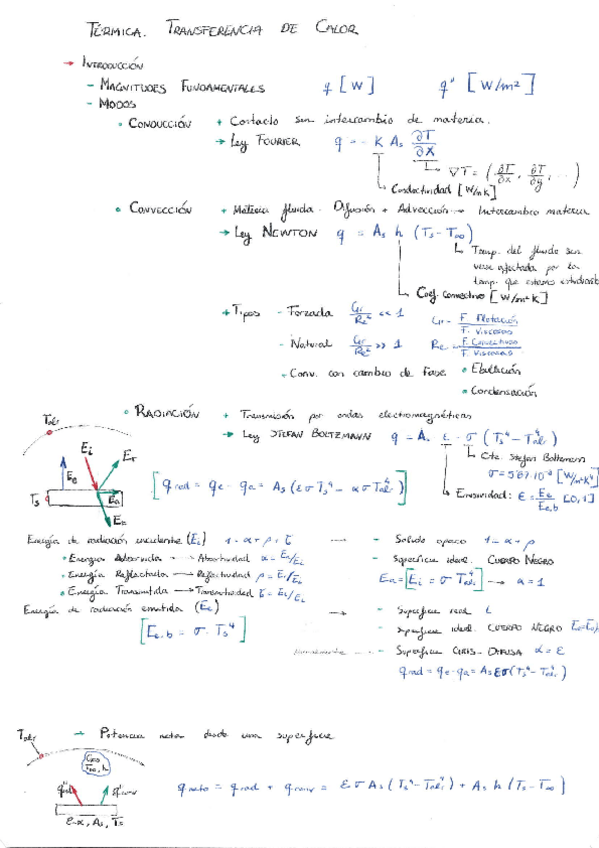 TÉRMICA. TRANSFERENCIA DE CALOR
→ INTRODUCCIÓN
- MAGNITUDES FUNDAMENTALES q [W] q" [W/m²]
- MODOS
• CONDUCCIÓN + Contacto sin intercambio de materia.
→ Ley FOURIER q = - K As ∂T/∂x
∇T = (∂T/∂x, ∂T/∂y, ...)
Conductividad [W/mK]
• CONVECCIÓN + Materia fluida. Difusión + Advección → Intercambio materia
→ Ley NEWTON q = As h (Ts - T∞)
Temp. del fluido sin
verse afectada por la
temp. que estamos estudiando
Coef. convectivo [W/m²K]
+ Tipos - Forzada Gr/Re² << 1 Gr = F. Flotación/F. Viscosas
- Natural Gr/Re² >> 1 Re = F. Convectivas/F. Viscosas
- Conv. con cambio de fase • Ebullición
• Condensación
• RADIACIÓN + Transmisión por ondas electromagnéticas
→ Ley STEFAN BOLTZMANN q = A. ε · σ (Ts⁴ - Talr⁴)
Cte. Stefan Boltzmann
σ = 5'67·10⁻⁸ [W/m²K⁴]
Emisividad: ε = Ee/Ee,b [0,1]
Talr
Ei Er
Ee
Ts Ea
Et
[qrad = qe - qa = As (εσTs⁴ - ασTalr⁴)]
Energía de radiación incidente (Ei) 1 = α + ρ + τ — - Solido opaco 1 = α + ρ
• Energía Absorvida → Absortividad α = Ea/Ei - Superficie ideal. CUERPO NEGRO
• Energía Reflectada → Reflectividad ρ = Er/Ei Ea = [Ei = σ Talr⁴] → α = 1
• Energía Transmitida → Transmitividad τ = Et/Ei
Energía de radiación emitida (Ee) → - Superficie real
[Ee,b = σ · Ts⁴] - Superficie ideal. CUERPO NEGRO
- Superficie GRIS - DIFUSA α = ε
qrad = qe - qa = As εσ (Ts⁴ - Talr⁴)
Talr → Potencia neta desde una superficie
Gas
T∞, h
q"rad q"conv qneto = qrad + qconv = εσAs (Ts⁴ - Talr⁴) + As h (Ts - T∞)
ε=α, As, Ts